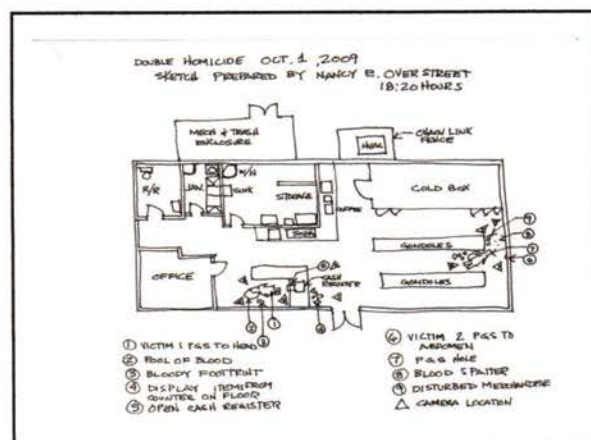 DOUBLE HOMICIDE OCT. 1, 2009
SKETCH PREPARED BY NANCY E. OVERSTREET
18:20 HOURS
MECH & TRASH
ENCLOSURE
CHAIN LINK
FENCE
HVAC
R/R
JAN.
SINK
STORAGE
COFFEE
COLD BOX
OFFICE
GONDOLES
GONDOLES
CASH
REGISTER
9
8
7
6
5
2
3
1
4
① VICTIM 1 PGS TO HEAD
② POOL OF BLOOD
③ BLOODY FOOTPRINT
④ DISPLAY ITEMS FROM
COUNTER ON FLOOR
⑤ OPEN CASH REGISTER
⑥ VICTIM 2 PGS TO
ABDOMEN
⑦ PGS HOLE
⑧ BLOOD SPATTER
⑨ DISTURBED MERCHANDISE
△ CAMERA LOCATION